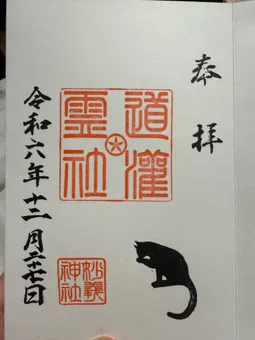 奉拝
道灌
霊社
妙義
神社
令和六年十二月二十七日